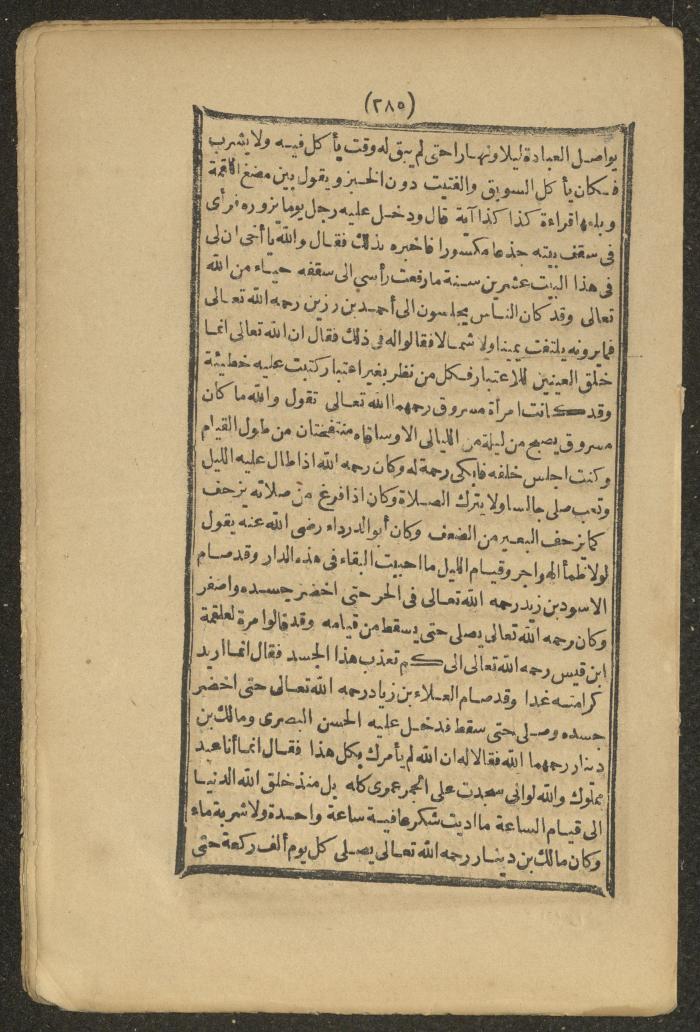 (٢٨٥)
يواصل العبادة ليلا ونهارا حتى لم يبق له وقت يأكل فيه ولا يشرب
فكان يأكل السويق والفتيت دون الخبز ويقول بين مضغ اللقمة
وبلعها قراءة كذا كذا آية قال ودخل عليه رجل يوما يزوره فرأى
فى سقف بيته جذعا مكسورا فاخبره بذلك فقال والله يا أخى ان لى
فى هذا البيت عشرين سنة ما رفعت رأسى الى سقفه حياء من الله
تعالى وقد كان الناس يجلسون الى أحمد بن رزين رحمه الله تعالى
فما يرونه يلتفت يمينا ولا شمالا فقالوا له فى ذلك فقال ان الله تعالى انما
خلق العينين للاعتبار فكل من نظر بغير اعتبار كتبت عليه خطيئة
وقد كانت امرأة مسروق رحمهما الله تعالى تقول والله ما كان
مسروق يصبح من ليلة من الليالى الا وساقاه منتفختان من طول القيام
وكنت اجلس خلفه فابكى رحمة له وكان رحمه الله اذا طال عليه الليل
وتعب صلى جالسا ولا يترك الصلاة وكان اذا فرغ من صلاته يزحف
كما يزحف البعير من الضعف وكان أبو الدرداء رضى الله عنه يقول
لولا ظمأ الهواجر وقيام الليل ما احببت البقاء فى هذه الدار وقد صام
الاسود بن زيد رحمه الله تعالى فى الحر حتى اخضر جسده واصفر
وكان رحمه الله تعالى يصلى حتى يسقط من قيامه وقد قالوا مرة لعلقمة
ابن قيس رحمه الله تعالى الى كم تعذب هذا الجسد فقال انما اريد
كرامته غدا وقد صام العلاء بن زياد رحمه الله تعالى حتى اخضر
جسده وصلى حتى سقط فدخل عليه الحسن البصرى ومالك بن
دينار رحمهما الله فقالا له ان الله لم يأمرك بكل هذا فقال انما أنا عبد
مملوك والله لو انى سجدت على الجمر عمرى كله بل منذ خلق الله الدنيا
الى قيام الساعة ما اديت شكر عافية ساعة واحدة ولا شربة ماء
وكان مالك بن دينار رحمه الله تعالى يصلى كل يوم ألف ركعة حتى